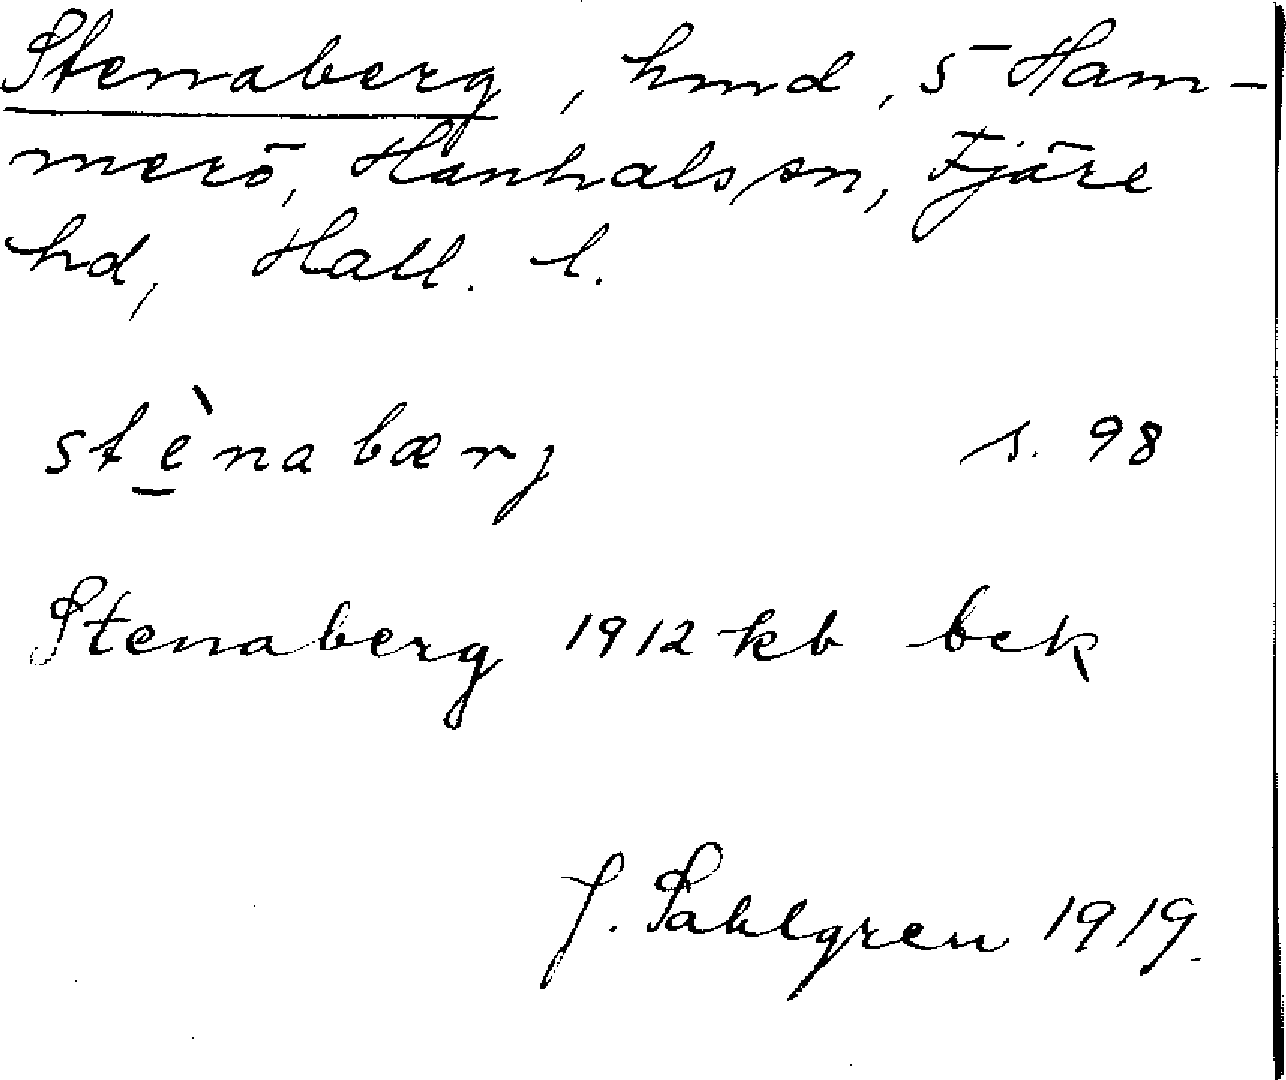 Stenaberg, hmd, 5 Ham-
merö, Hanhals sn, Fjäre
hd, Hall. l.
stè̱nabærj s. 98
Stenaberg 1912 kb bek
J. Sahlgren 1919.